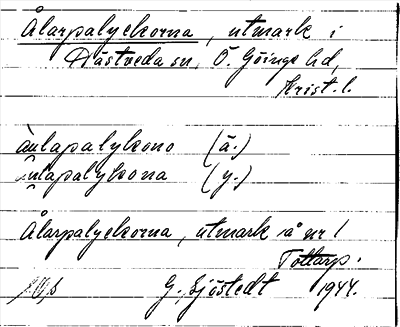 Ålarpalyckorna, utmark i
Hästveda sn, Ö. Göinge hd,
Krist. l.
åulapalykono (ä.)
ulapalykona (y.)
Ålarpalyckorna, utmark å nr 1
Tottarp.
G. Sjöstedt 1944.